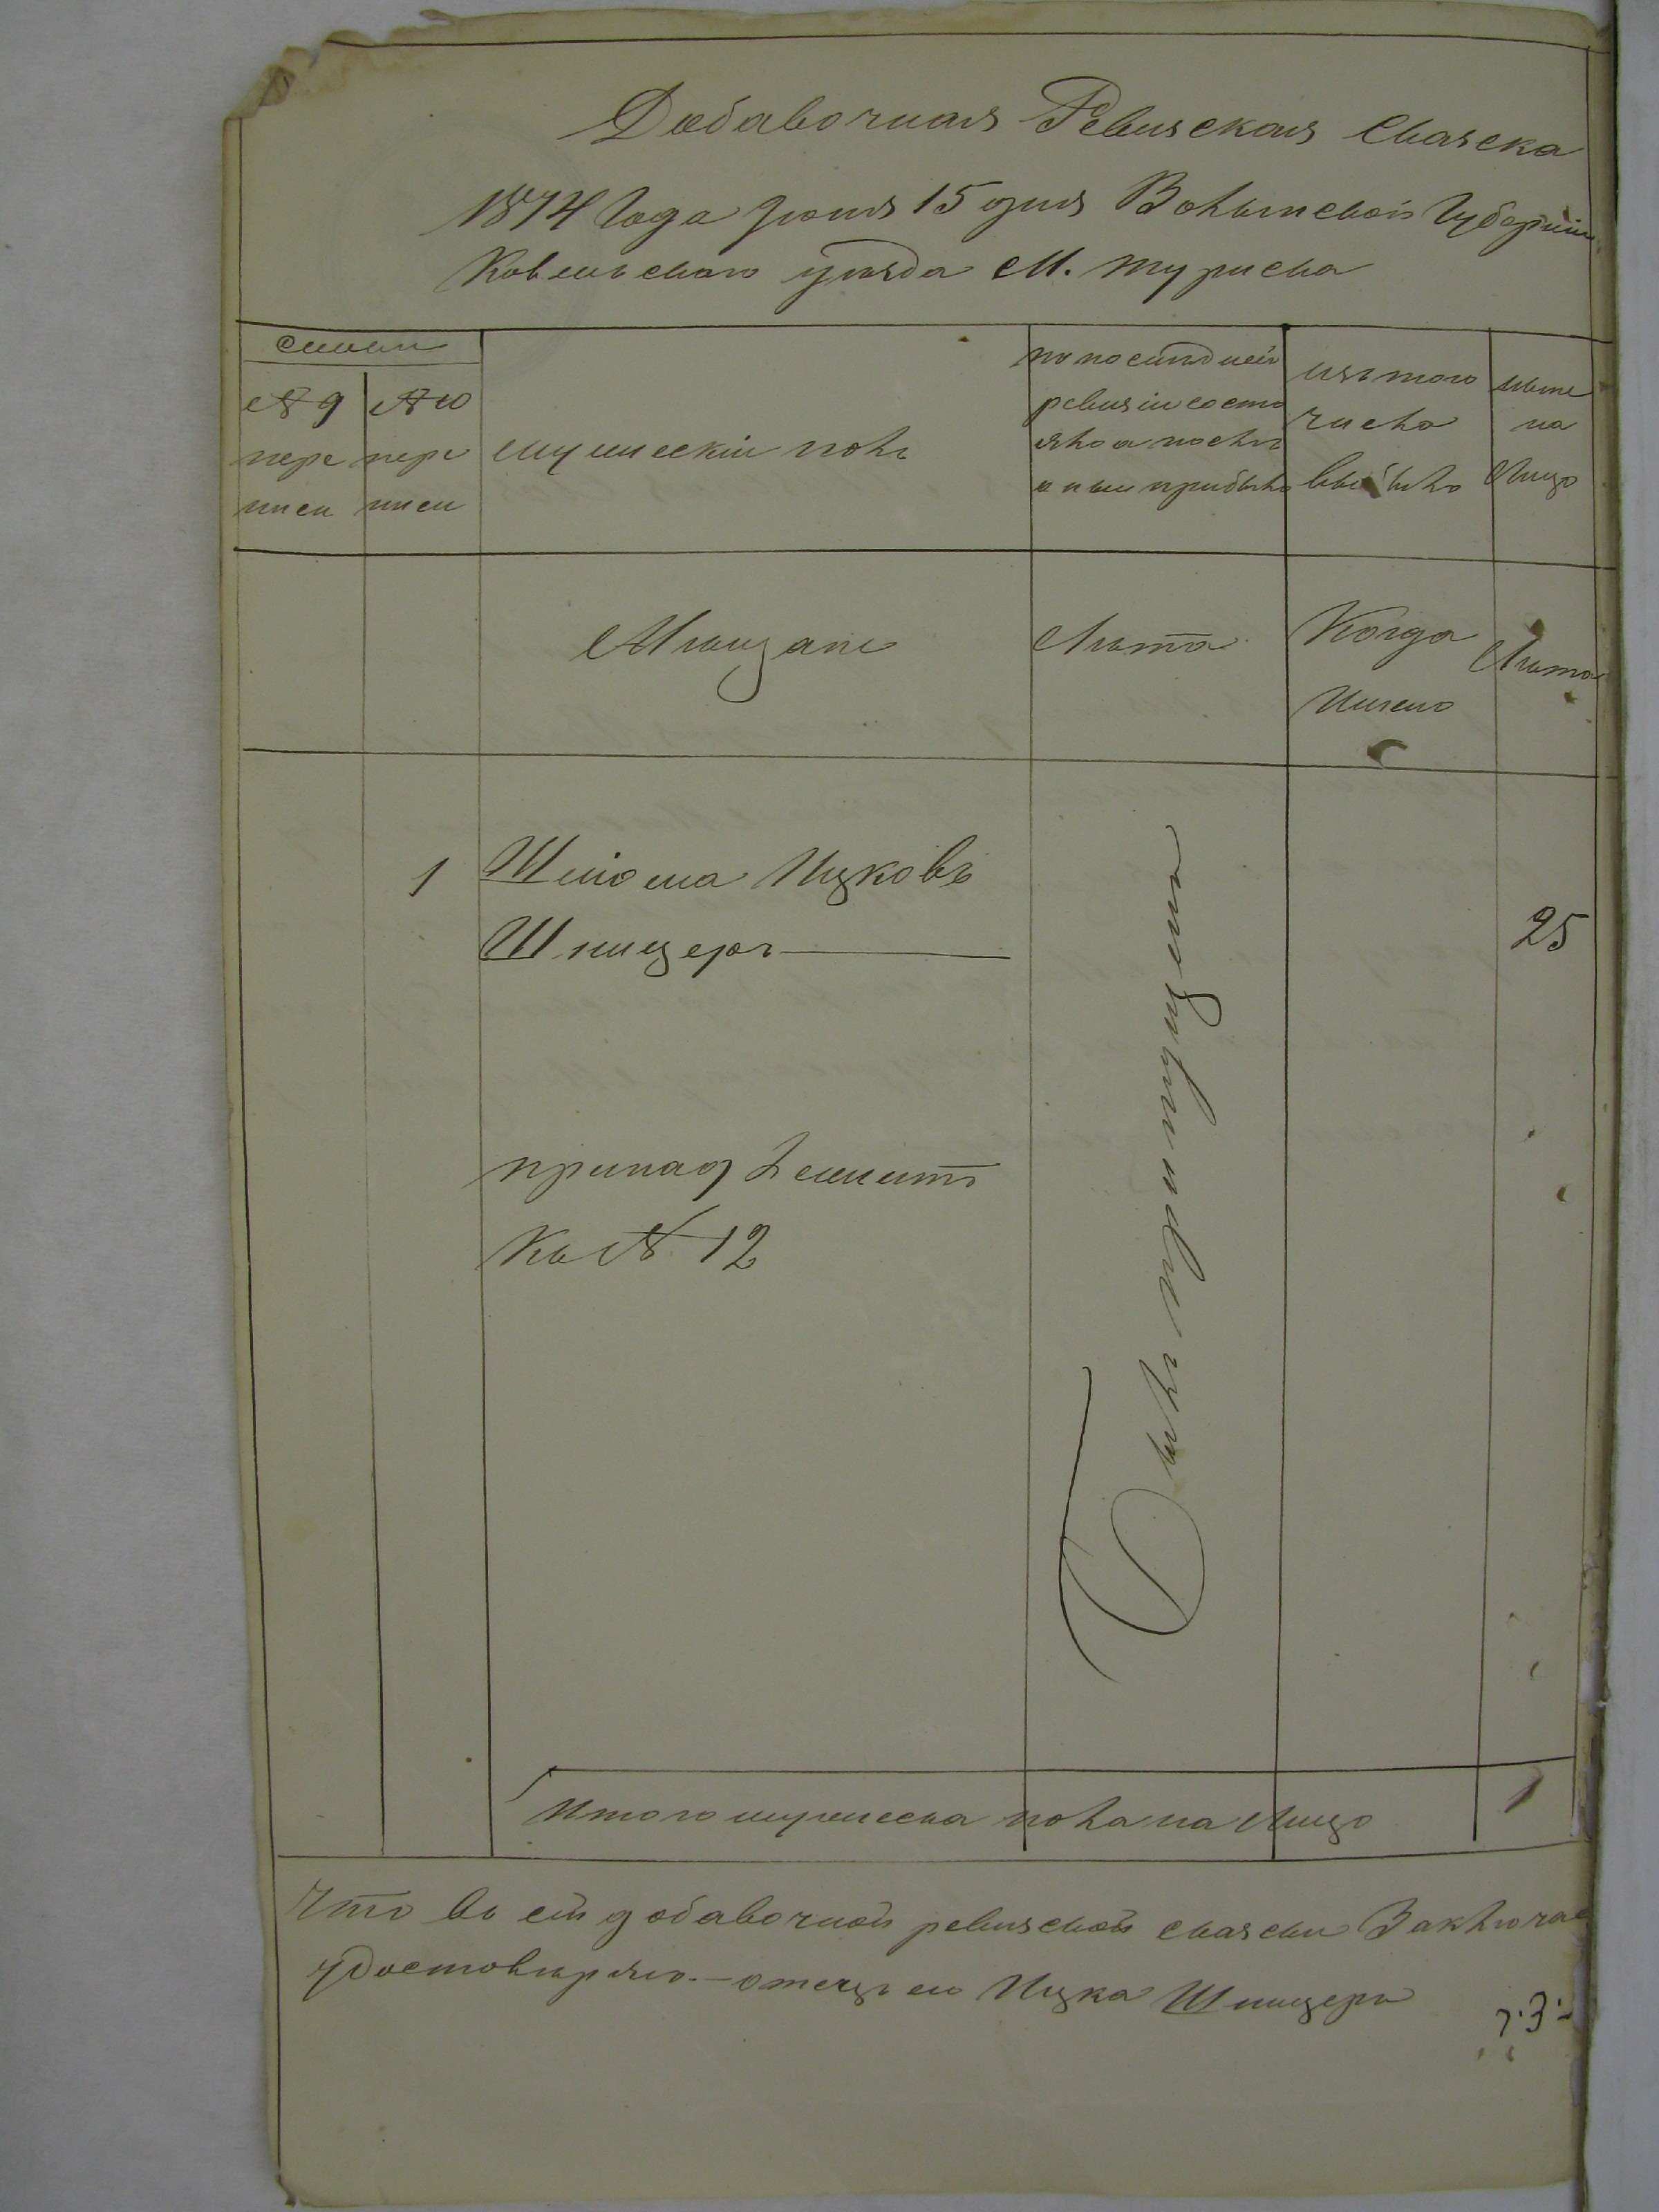 Добавочная Ревизская Сказка
1874 Года Іюня 15 дня Волынской Губерніи
Ковельского уѣзда М. Туриска
семьи
№ 9 пере писи
№ 10 пере писи
мужескій полъ
по последней
ревизіи состо
яло а послѣ
оныи прибыло
изъ того
числа
выбыло
ныне
на
Лицо
Мѣщане
Лѣта
Когда
Имено
Лѣта
1 Шліома Ицковъ
Шницеръ
25
принадлежитъ
къ № 12
Былъ пропущенъ
Итого мужеска пола на Лицо 1
Что въ сей добавочной ревизской сказки Заключае
удостовѣряю. – отецъ его Ицка Шницеръ